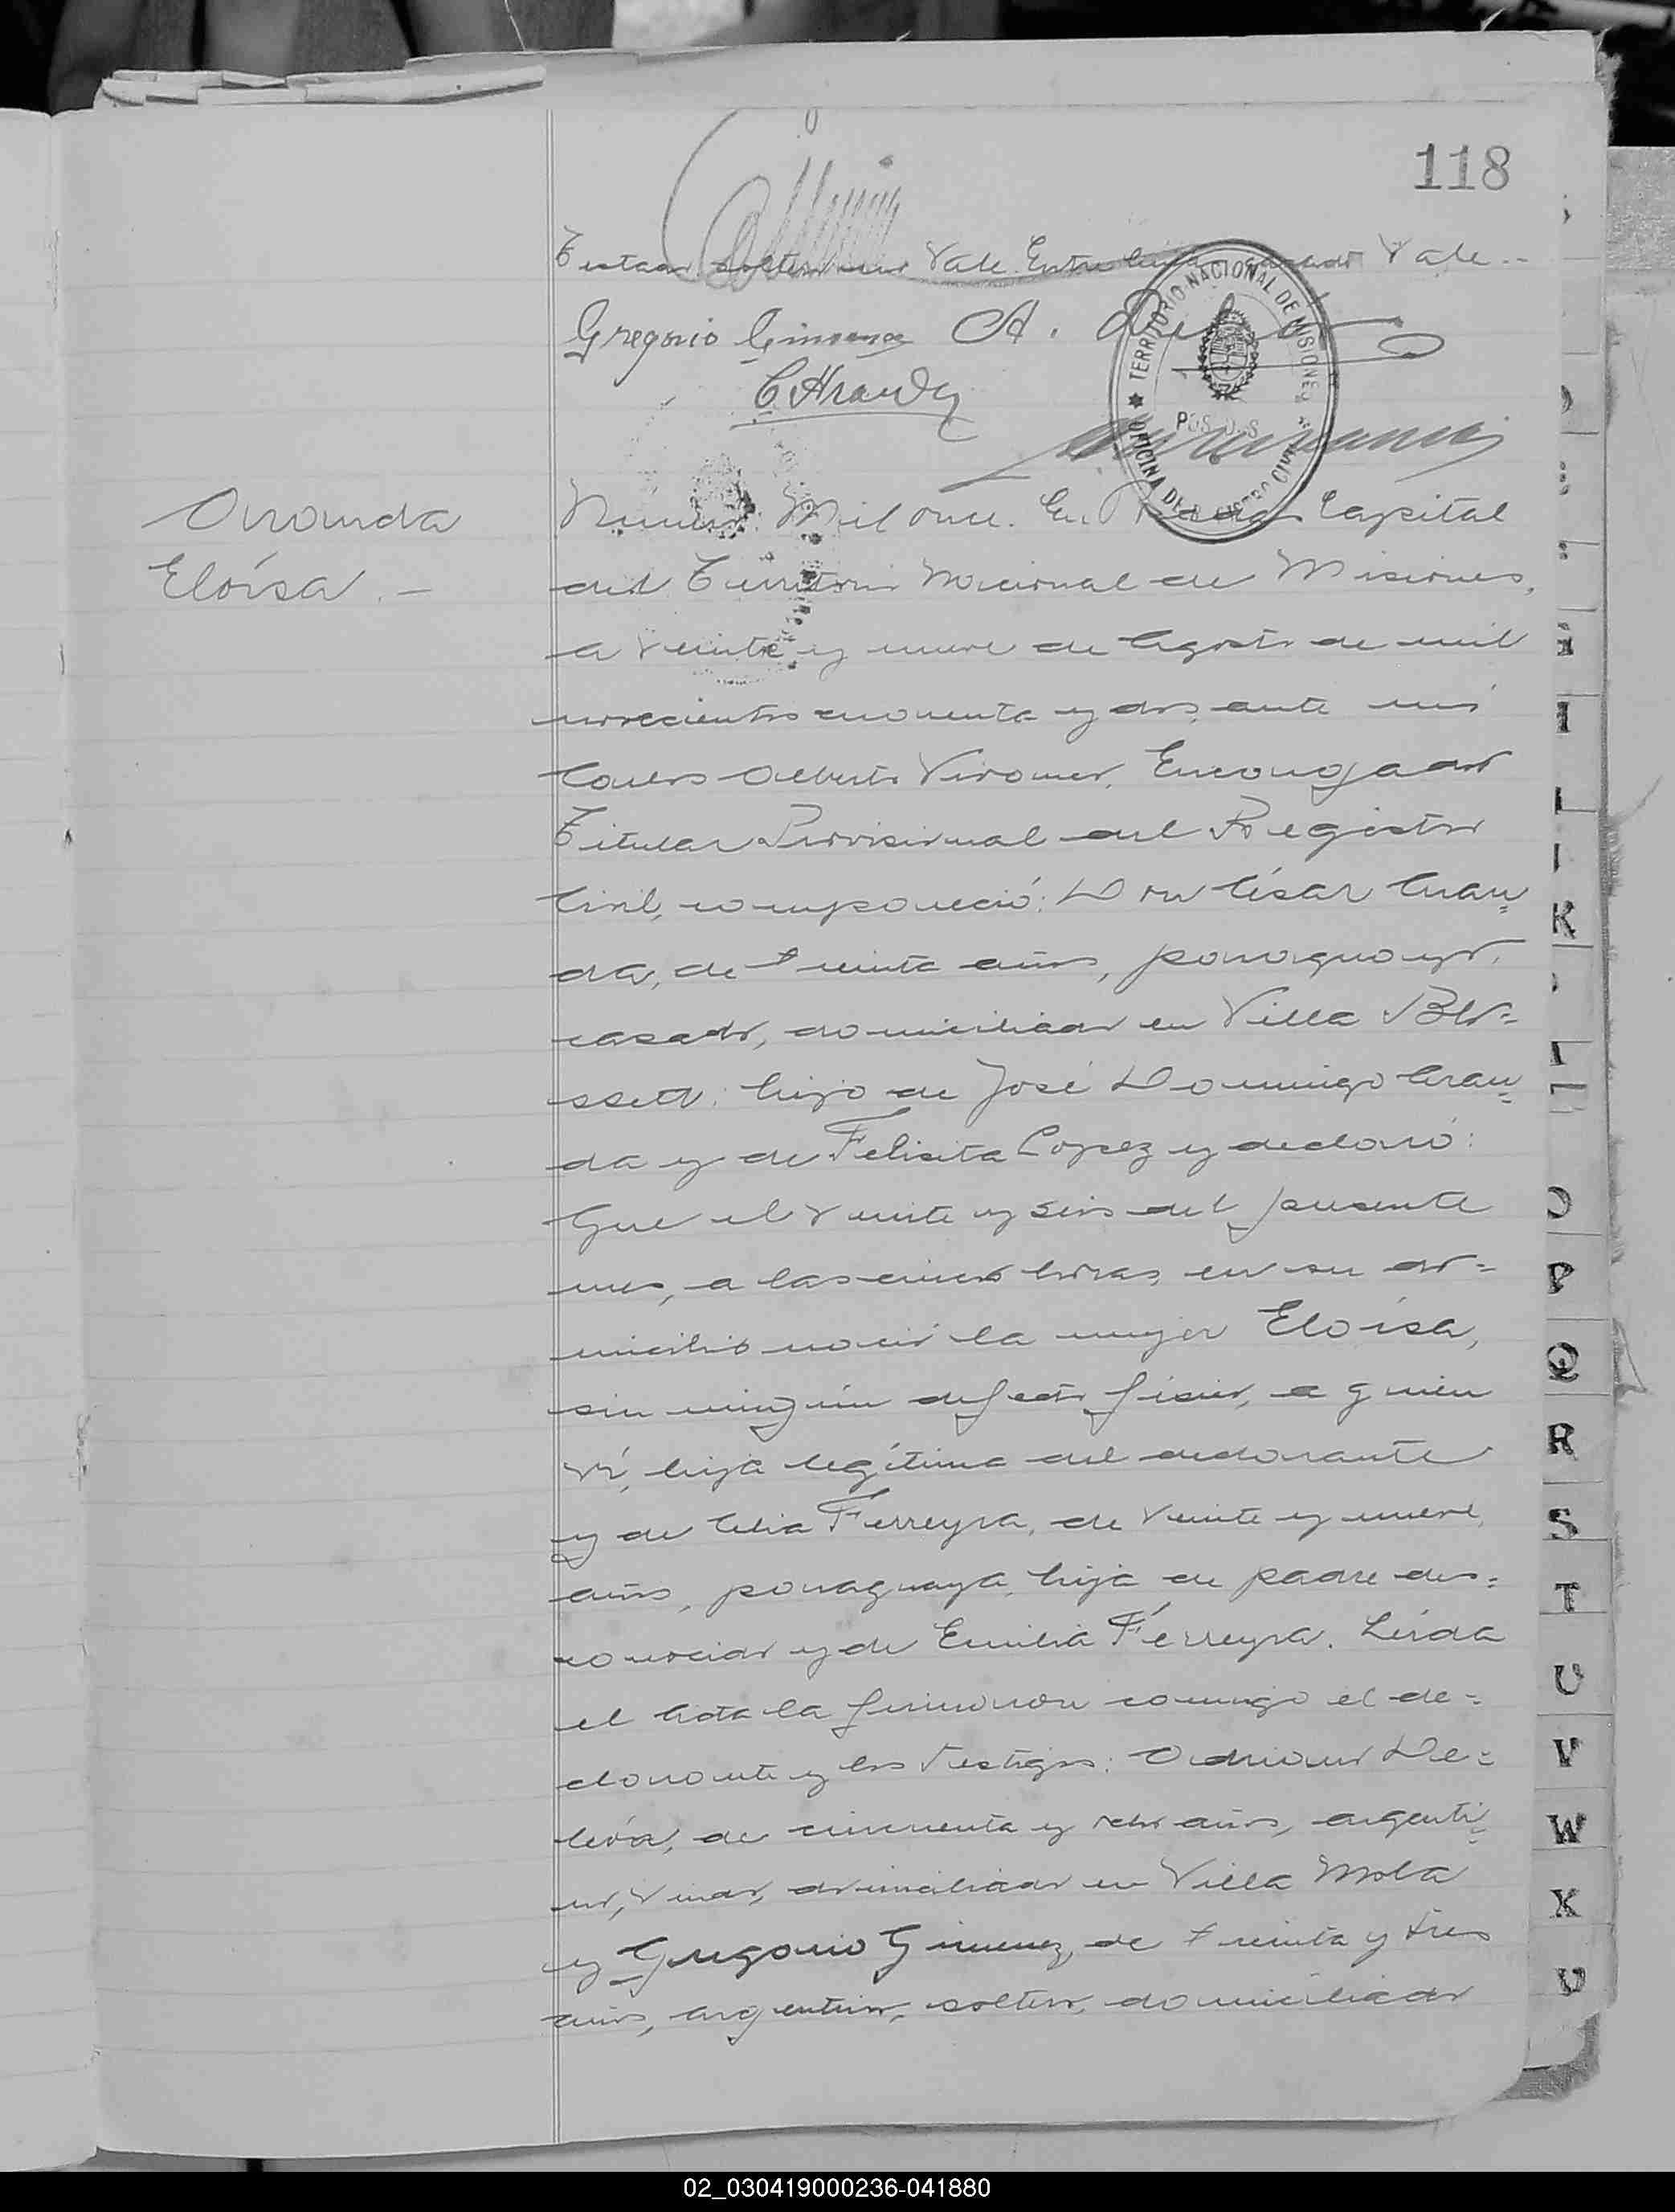 118
Testado soltero no Vale. Entre líneas casado Vale..
Gregorio Gimenez A. 
C. Aranda
TERRITORIO NACIONAL DE MISIONES
POSADAS
OFICINA DEL REGISTRO CIVIL
Aranda
Eloísa. —
Número Mil once. En Posadas Capital
del Territorio Nacional de Misiones,
a veinte y nueve de Agosto de mil
novecientos cuarenta y dos, ante mí
Carlos Alberto Encargado
Titular Provisional del Registro
Civil, compareció: Don César Aran=
da, de treinta años, paraguayo,
casado, domiciliado en Villa Blo=
sset; hijo de José Domingo Aran=
da y de Felicita Lopez y declaró:
Que el veinte y seis del presente
mes, a las cinco horas, en su do=
micilio nació la mujer Eloísa,
sin ningún defecto físico, a quien
ví, hija legítima del declarante
y de Celia Ferreyra, de veinte y nueve
años, paraguaya, hija de padre des=
conocido y de Emilia Ferreyra. Leída
el Acta la firmaron conmigo el de=
clarante y los testigos: Adriano De=
de cincuenta y ocho años, argenti=
no, viudo, domiciliado en Villa Mola
y Gregorio Gimenez, de treinta y tres
años, argentino, soltero, domiciliado
K
O
P
Q
R
S
T
U
V
W
X
02_030419000236-041880